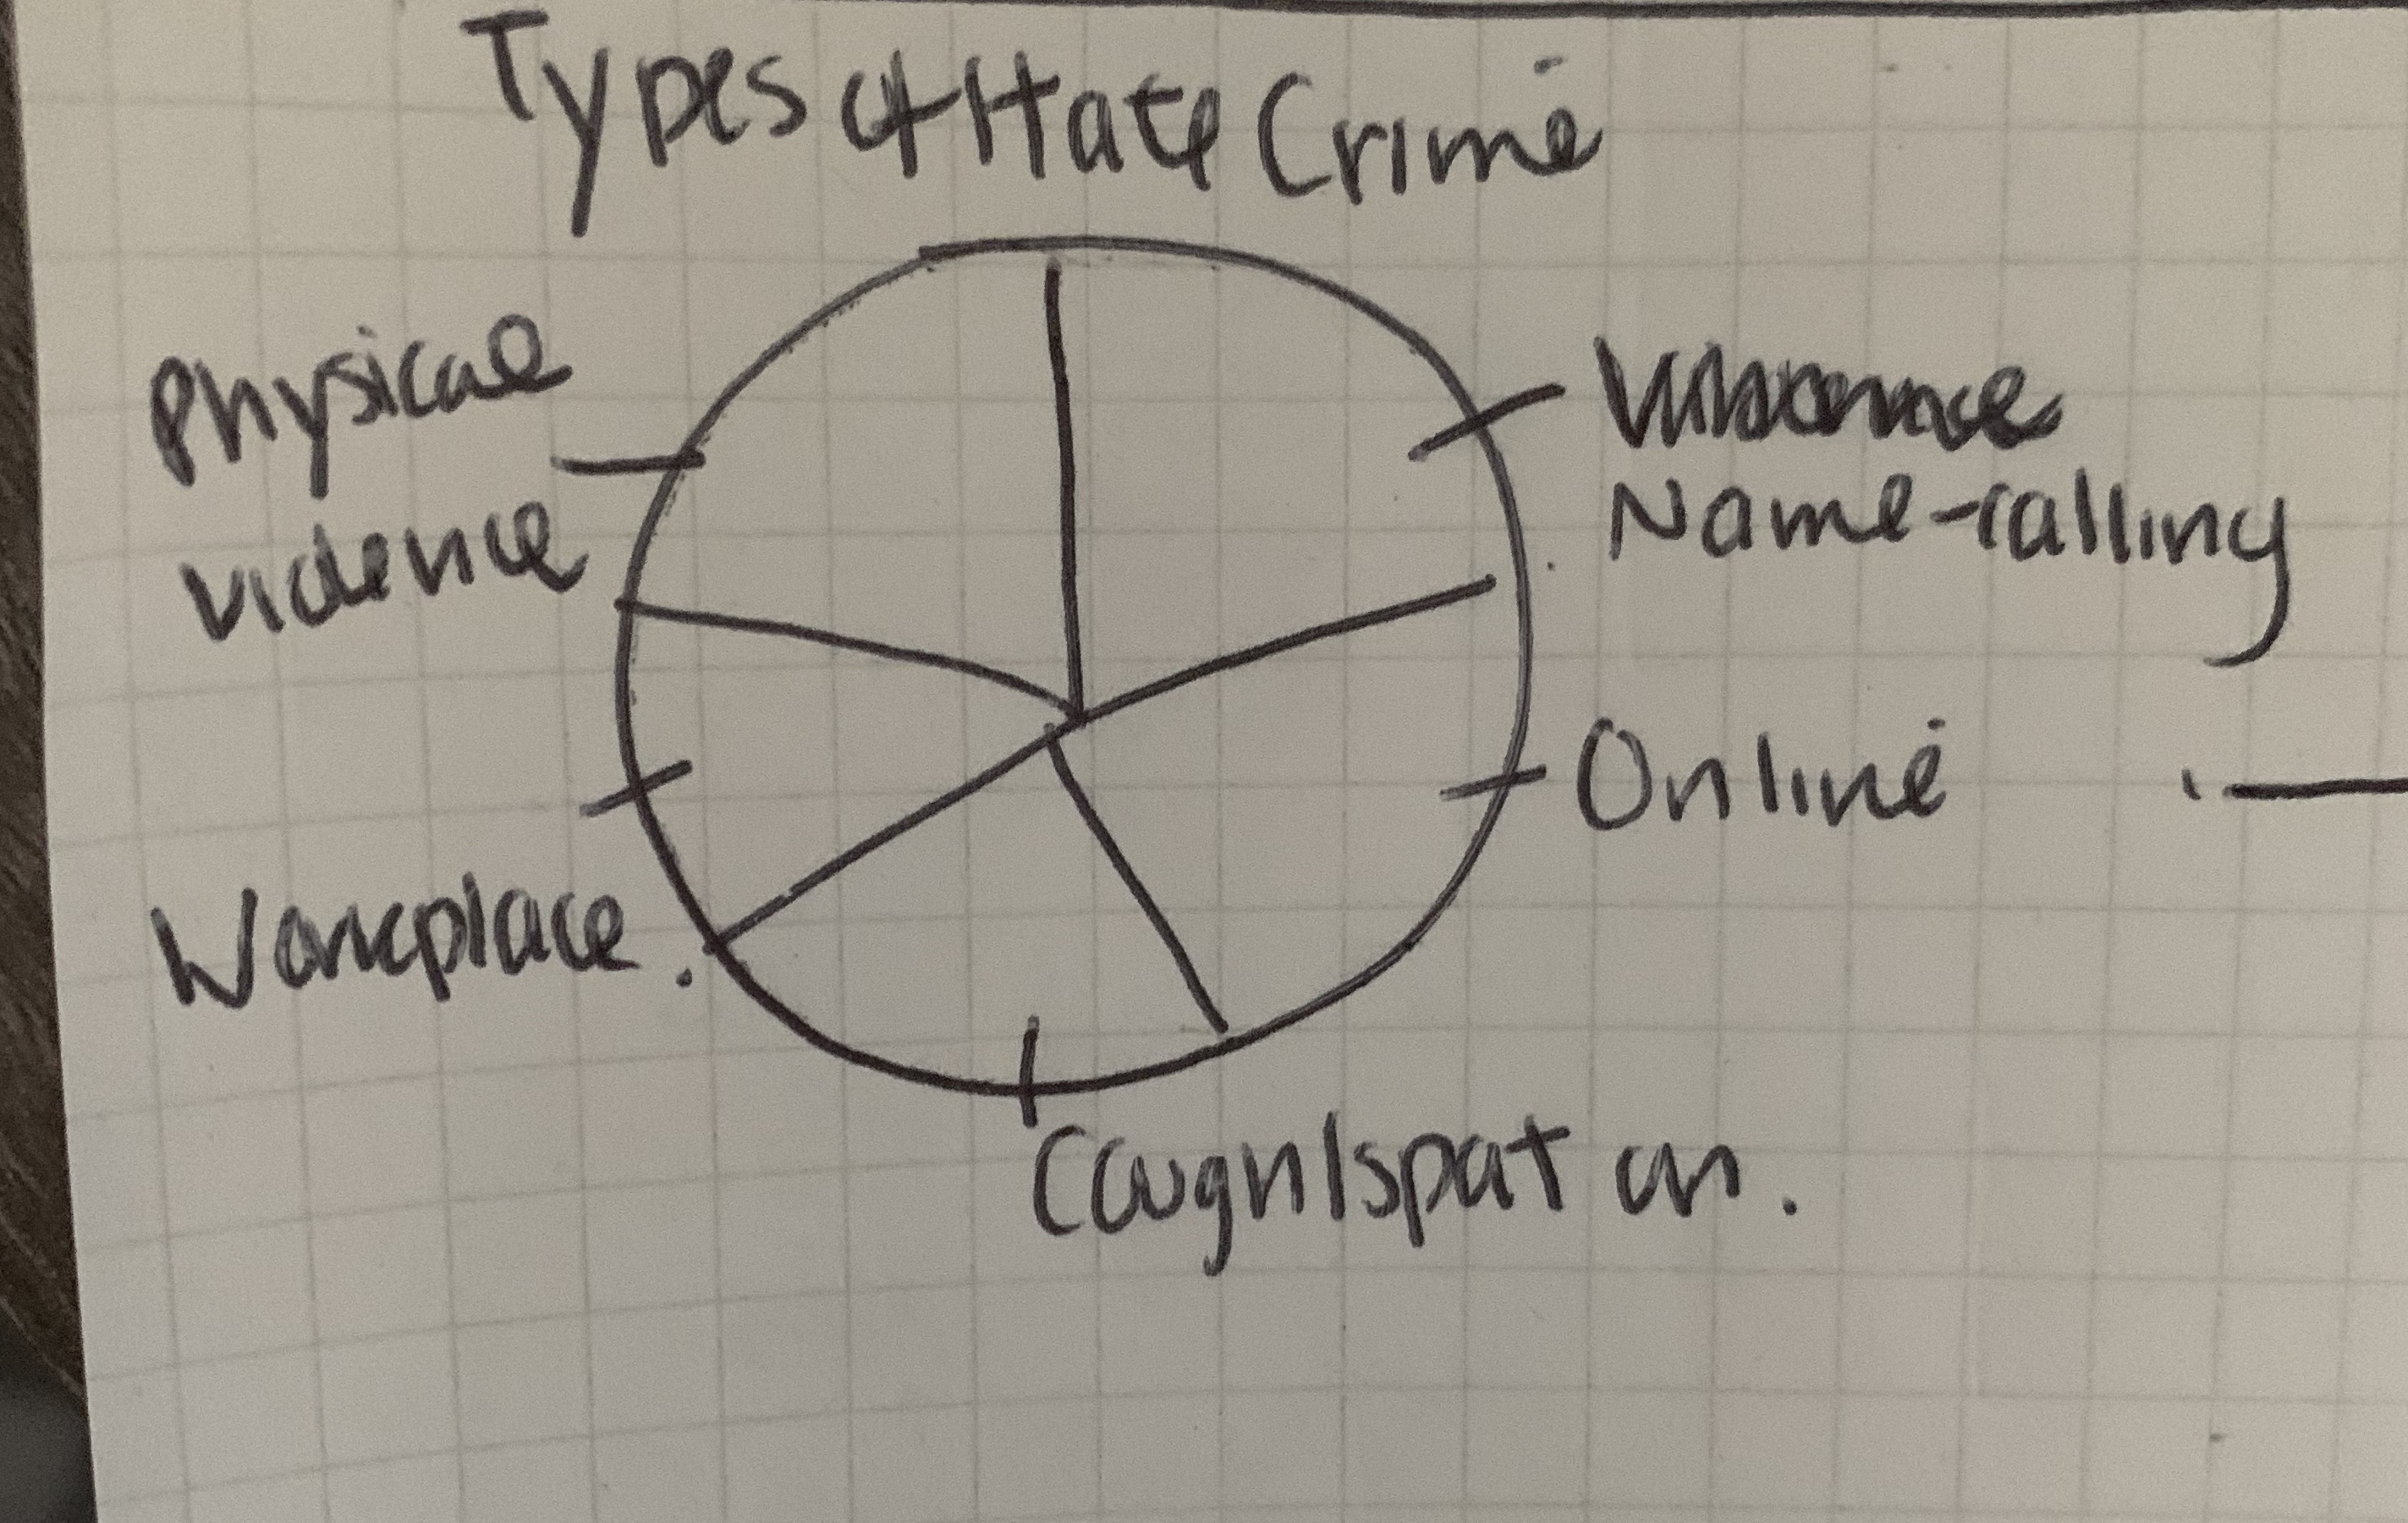 Types of Hate Crime
Physical
violence
Name-calling
Online
Workplace.
Cough/spat on.